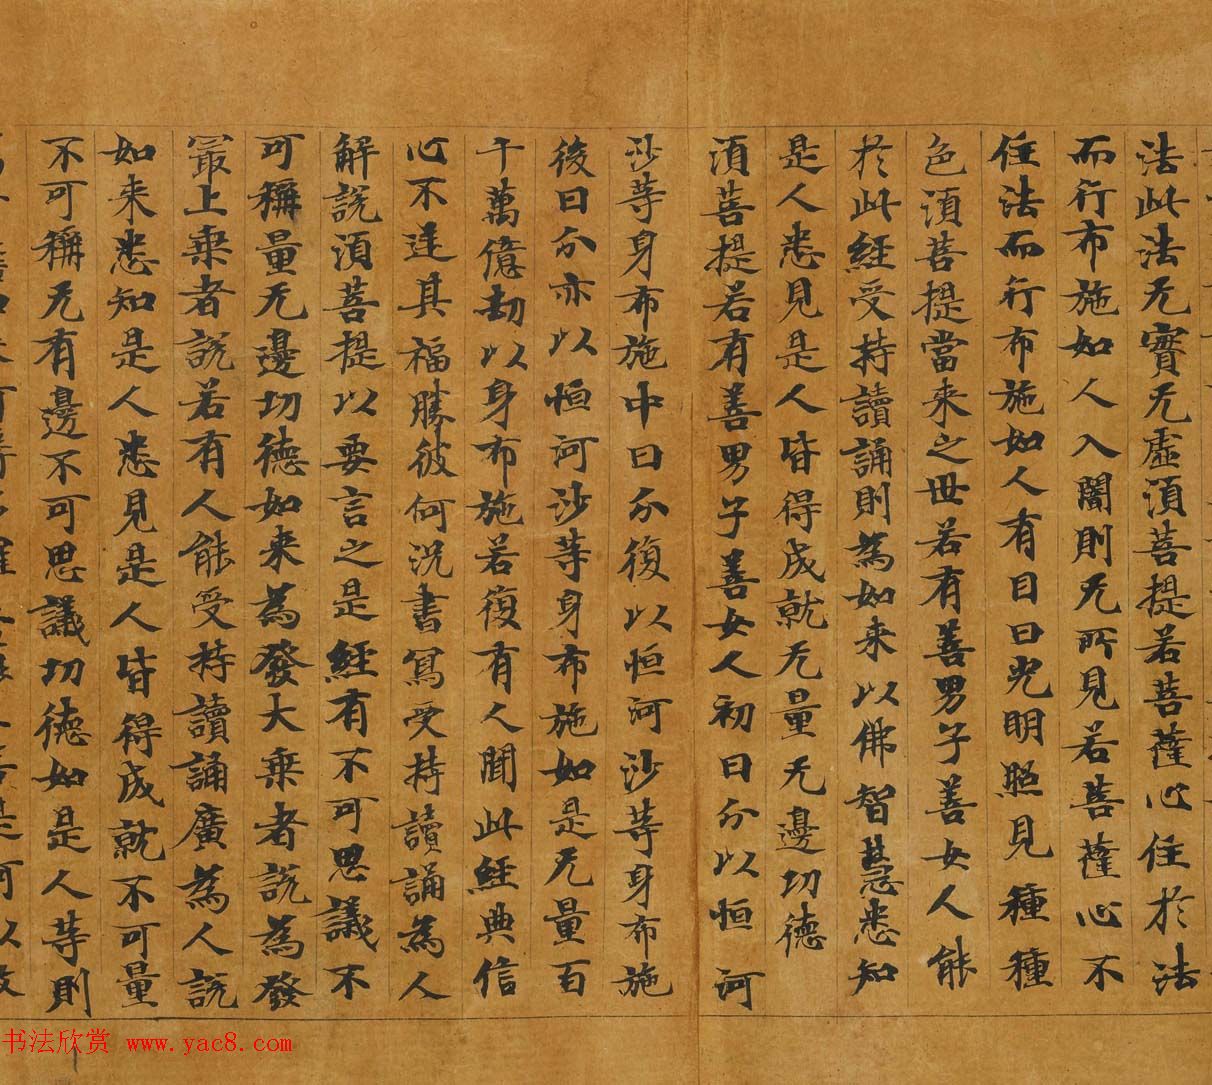 法此法无實无虛湏菩提若菩薩心住於法
而行布施如人入闇則无所見若菩薩心不
住法而行布施如人有目日光明照見種種
色湏菩提當来之世若有善男子善女人能
於此經受持讀誦則為如来以佛智慧悉知
是人悉見是人皆得成就无量无邊功德
湏菩提若有善男子善女人初日分以恒河
沙等身布施中日分復以恒河沙等身布施
後日分亦以恒河沙等身布施如是无量百
千萬億劫以身布施若復有人聞此經典信
心不逆其福勝彼何況書寫受持讀誦為人
解説湏菩提以要言之是經有不可思議不
可稱量无邊功德如来為發大乗者説為發
最上乗者説若有人能受持讀誦廣為人説
如来悉知是人悉見是人皆得成就不可量
不可稱无有邊不可思議功德如是人等則
书法欣赏 www.yac8.com